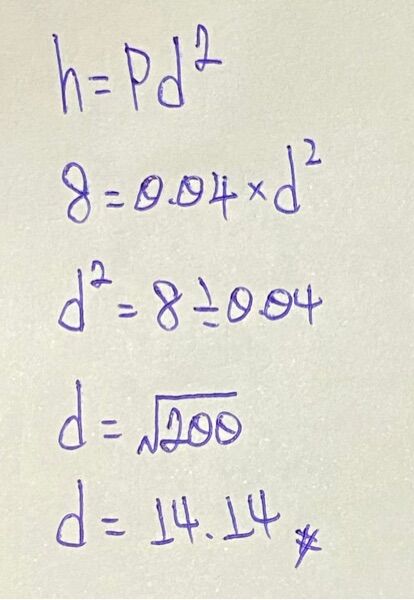 h=Pd²
8=0.04×d²
d²=8÷0.04
d=√200
d=14.14 *